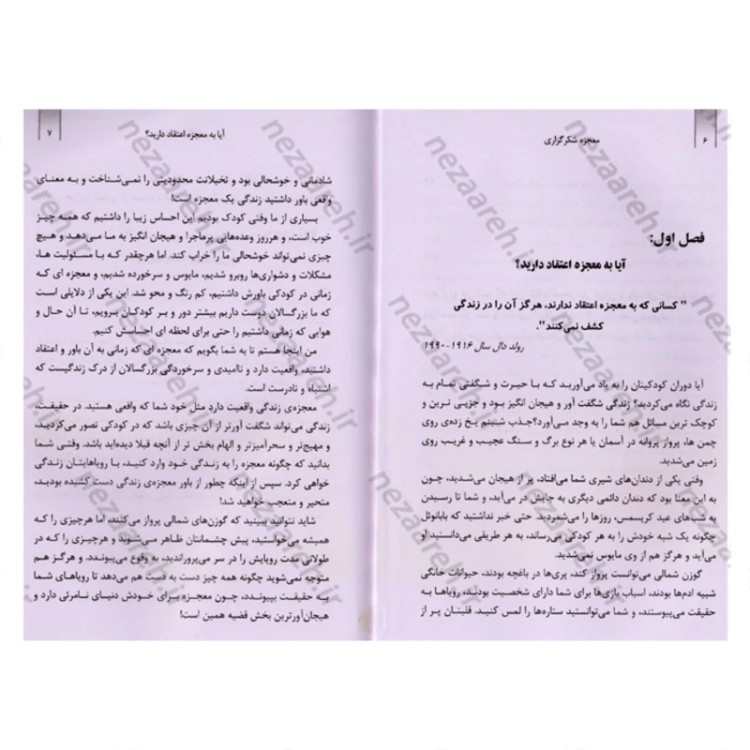 ۶
معجزه شکرگزاری
فصل اول:
آیا به معجزه اعتقاد دارید؟
" کسانی که به معجزه اعتقاد ندارند، هرگز آن را در زندگی
کشف نمی‌کنند".
رولد دال سال ۱۹۱۶-۱۹۹۰
آیا دوران کودکیتان را به یاد می‌آورید که با حیرت و شگفتی تمام به
زندگی نگاه می‌کردید؟ زندگی شگفت آور و هیجان انگیز بود و جزیی ترین و
کوچک ترین مسائل هم شما را به وجد می‌آورد؟جذب شبنم یخ زده‌ی روی
چمن ها، پرواز پروانه در آسمان یا هر نوع برگ و سنگ عجیب و غریب روی
زمین می‌شدید.
وقتی یکی از دندان‌های شیری شما می‌افتاد، پر از هیجان می‌شدید، چون
به این معنا بود که دندان دائمی دیگری به جایش در می‌آید، و شما تا رسیدن
به شب‌های عید کریسمس، روزها را می‌شمردید. حتی خبر نداشتید که بابانوئل
چگونه یک شبه خودش را به هر کودکی می‌رساند، به هر طریقی می‌دانستید او
می‌آید و هرگز هم از وی مایوس نمی‌شدید.
گوزن شمالی می‌توانست پرواز کند، پری‌ها در باغچه بودند، حیوانات خانگی
شبیه آدم‌ها بودند، اسباب بازی‌ها برای شما دارای شخصیت بودند، رویاها به
حقیقت می‌پیوستند، و شما می‌توانستید ستاره‌ها را لمس کنید. قلبتان پر از
آیا به معجزه اعتقاد دارید؟
۷
شادمانی و خوشحالی بود و تخیلانت محدودیتی را نمی‌شناخت و به معنای
واقعی باور داشتید زندگی یک معجزه است!
بسیاری از ما وقتی کودک بودیم این احساس زیبا را داشتیم که همه چیز
خوب است، و هرروز وعده‌هایی پرماجرا و هیجان انگیز به ما می‌دهد و هیچ
چیزی نمی‌تواند خوشحالی ما را خراب کند. اما هرچقدر که با مسئولیت ها،
مشکلات و دشواری‌ها روبرو شدیم، مایوس و سرخورده شدیم، و معجزه ای که
زمانی در کودکی باورش داشتیم، کم رنگ و محو شد. این یکی از دلایلی است
که ما بزرگسالان دوست داریم بیشتر دور و بر کودکان برویم، تا آن حال و
هوایی که زمانی داشتیم را حتی برای لحظه ای احساسش کنیم.
من اینجا هستم تا به شما بگویم که معجزه ای که زمانی به آن باور و اعتقاد
داشتید، واقعیت دارد و ناامیدی و سرخوردگی بزرگسالان از درک زندگیست که
اشتباه و نادرست است.
معجزه‌ی زندگی واقعیت دارد مثل خود شما که واقعی هستید. در حقیقت،
زندگی می‌تواند شگفت آورتر از آن چیزی باشد که در کودکی تصور می‌کردید،
و مهیج‌تر و سحرآمیزتر و الهام بخش تر از آنچه قبلا دیده‌اید باشد. وقتی شما
بدانید که چگونه معجزه را به زندگی خود وارد کنید، با رویاهایتان زندگی
خواهی کرد. سپس از اینکه چطور از باور معجزه‌ی زندگی دست کشیده بودید،
متحیر و متعجب خواهید شد!
شاید نتوانید ببینید که گوزن‌های شمالی پرواز می‌کنند، اما هرچیزی را که
همیشه می‌خواستید، پیش چشمانتان ظاهر می‌شوند و هرچیزی را که در
طولانی مدت رویایش را در سر می‌پروراندید، به وقوع می‌پیوندد. و هرگز هم
متوجه نمی‌شوید چگونه همه چیز دست به دست هم می‌دهد تا رویاهای شما
به حقیقت بپیوندد، چون معجزه برای خودش دنیای نامرئی دارد و
هیجان‌آورترین بخش قضیه همین است!
nezaareh.ir